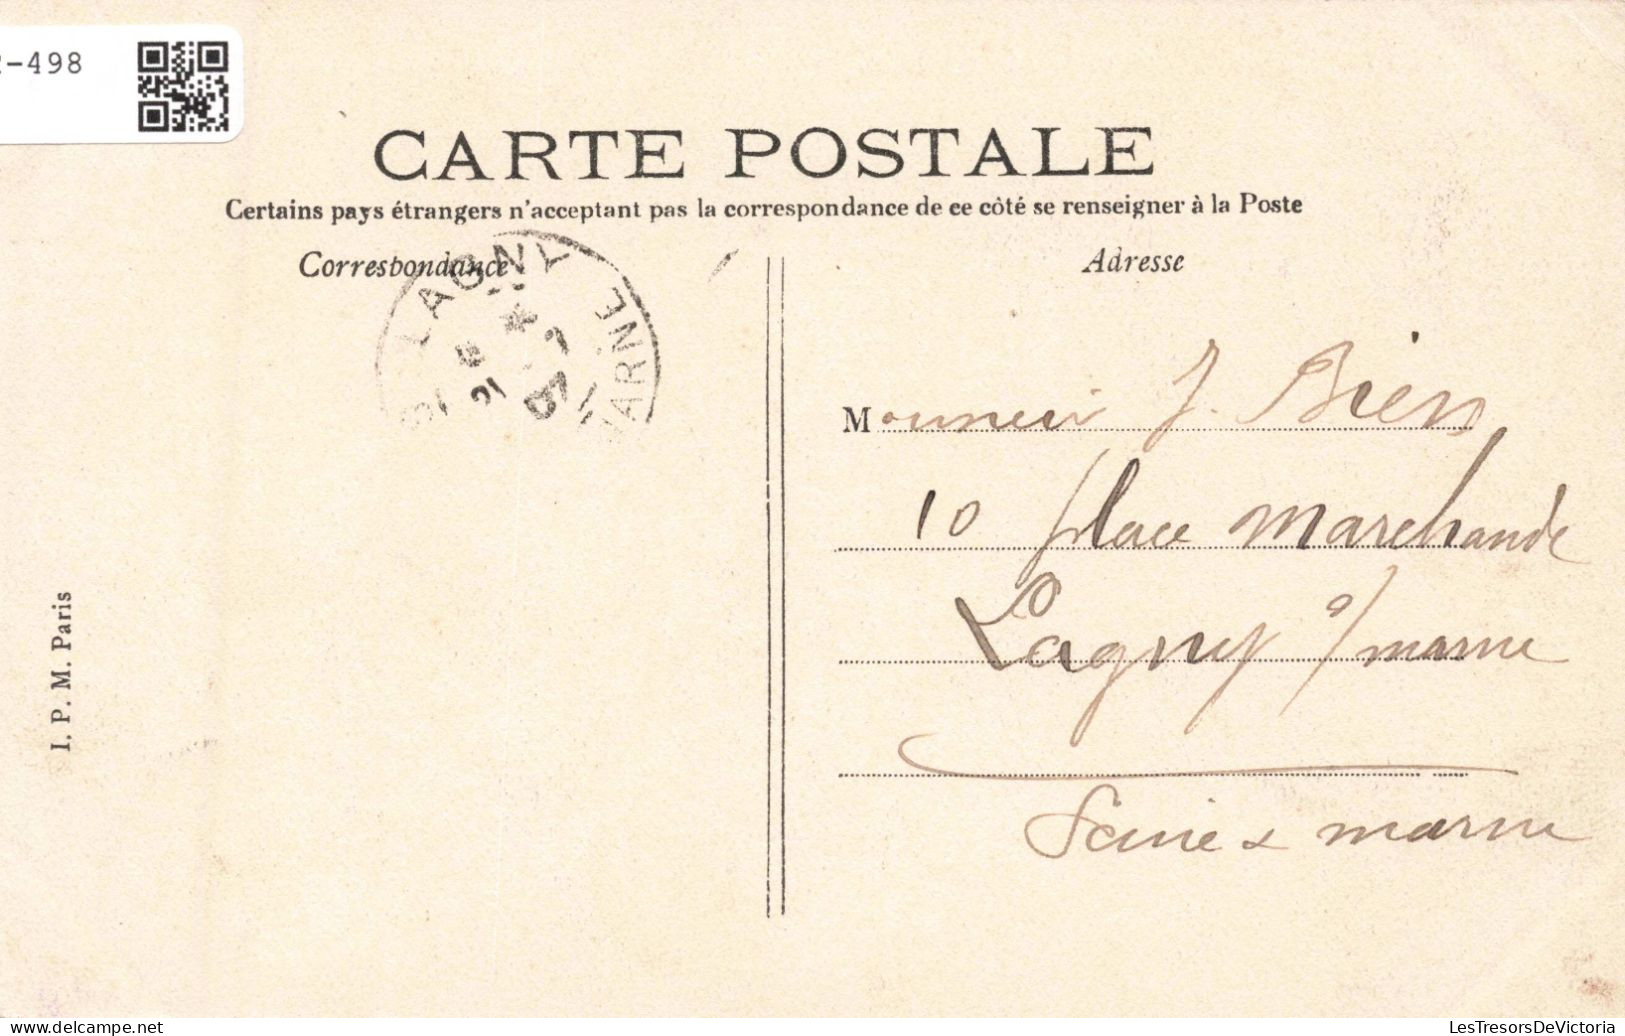 -498
CARTE POSTALE
Certains pays étrangers n'acceptant pas la correspondance de ce côté se renseigner à la Poste
Correspondance
Adresse
LAGNY
MARNE
Monsieur J. Bien
10 place Marchande
Lagny s/marne
Seine & marne
I. P. M. Paris
www.delcampe.net
LesTresorsDeVictoria